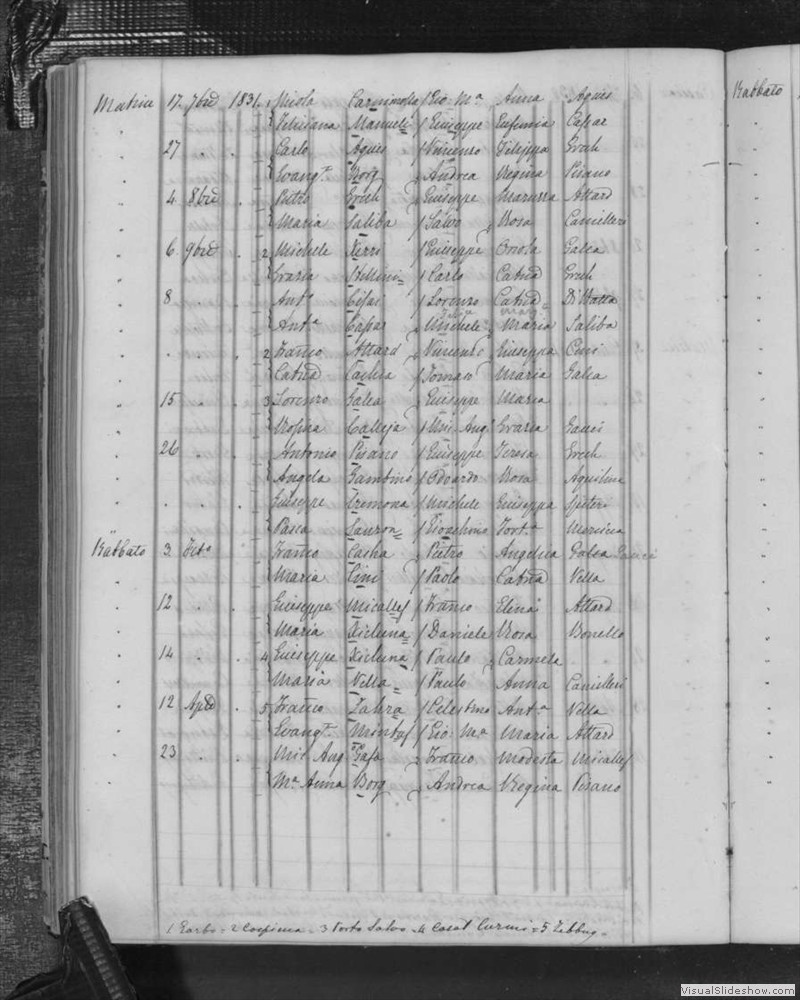 Matrice 17 7bre 1831. 1 Nicola Carnimolla Gio: Ma Anna Agius
Manueli Giuseppe Eufemia Caffar
27 " " Carlo Agius Vincenzo Filippa Grech
Evangta Borg Andrea Regina Pisano
4 8bre " Pietro Grech Giuseppe Maruzza Attard
Maria Saliba Salvo Rosa Camilleri
6 9bre " 2 Michele Xerri Giuseppe Oriola Galea
Grazia Stellini Carlo Catna Grech
8 " " Anto Lorenzo Catna
Anta Cafar Michele Maria Saliba
" " " 2 Franco Attard Vincenzo Giuseppa Cini
Catna Cachia Tomaso Maria Galea
15 " " 3 Lorenzo Galea Giuseppe Maria " "
Rosina Calleja Mic: Ang: Grazia Gauci
26 " " Antonio Pisano Giuseppe Teresa Grech
Angela Gambino Odoardo Rosa Aquilina
" " " Giuseppe Cremona Michele Giuseppa Spiteri
Pasca Lauron Gioachino Forta Messina
Rabbato 3 Febo Franco Casha Pietro Angelica Galea Gauci
Maria Cini Paolo Catna Vella
12 " " Giuseppe Micallef Franco Elena Attard
Maria Xicluna Daniele Rosa Bonello
14 " " 4 Giuseppe Xicluna Paulo Carmela "
Maria Vella Paulo Anna Camilleri
12 Aple " 5 Franco Zahra Celestino Anta Vella
Evangta Mintof Gio: Ma Maria Attard
23 " " Mic: Ang Gafa Franco Modesta Micallef
Ma Anna Borg Andrea Regina Pisano
1 Garbo = 2 Cospicua = 3 Porto Salvo = 4 Casal Curmi = 5 Zebbug =
Rabbato
VisualSlideshow.com